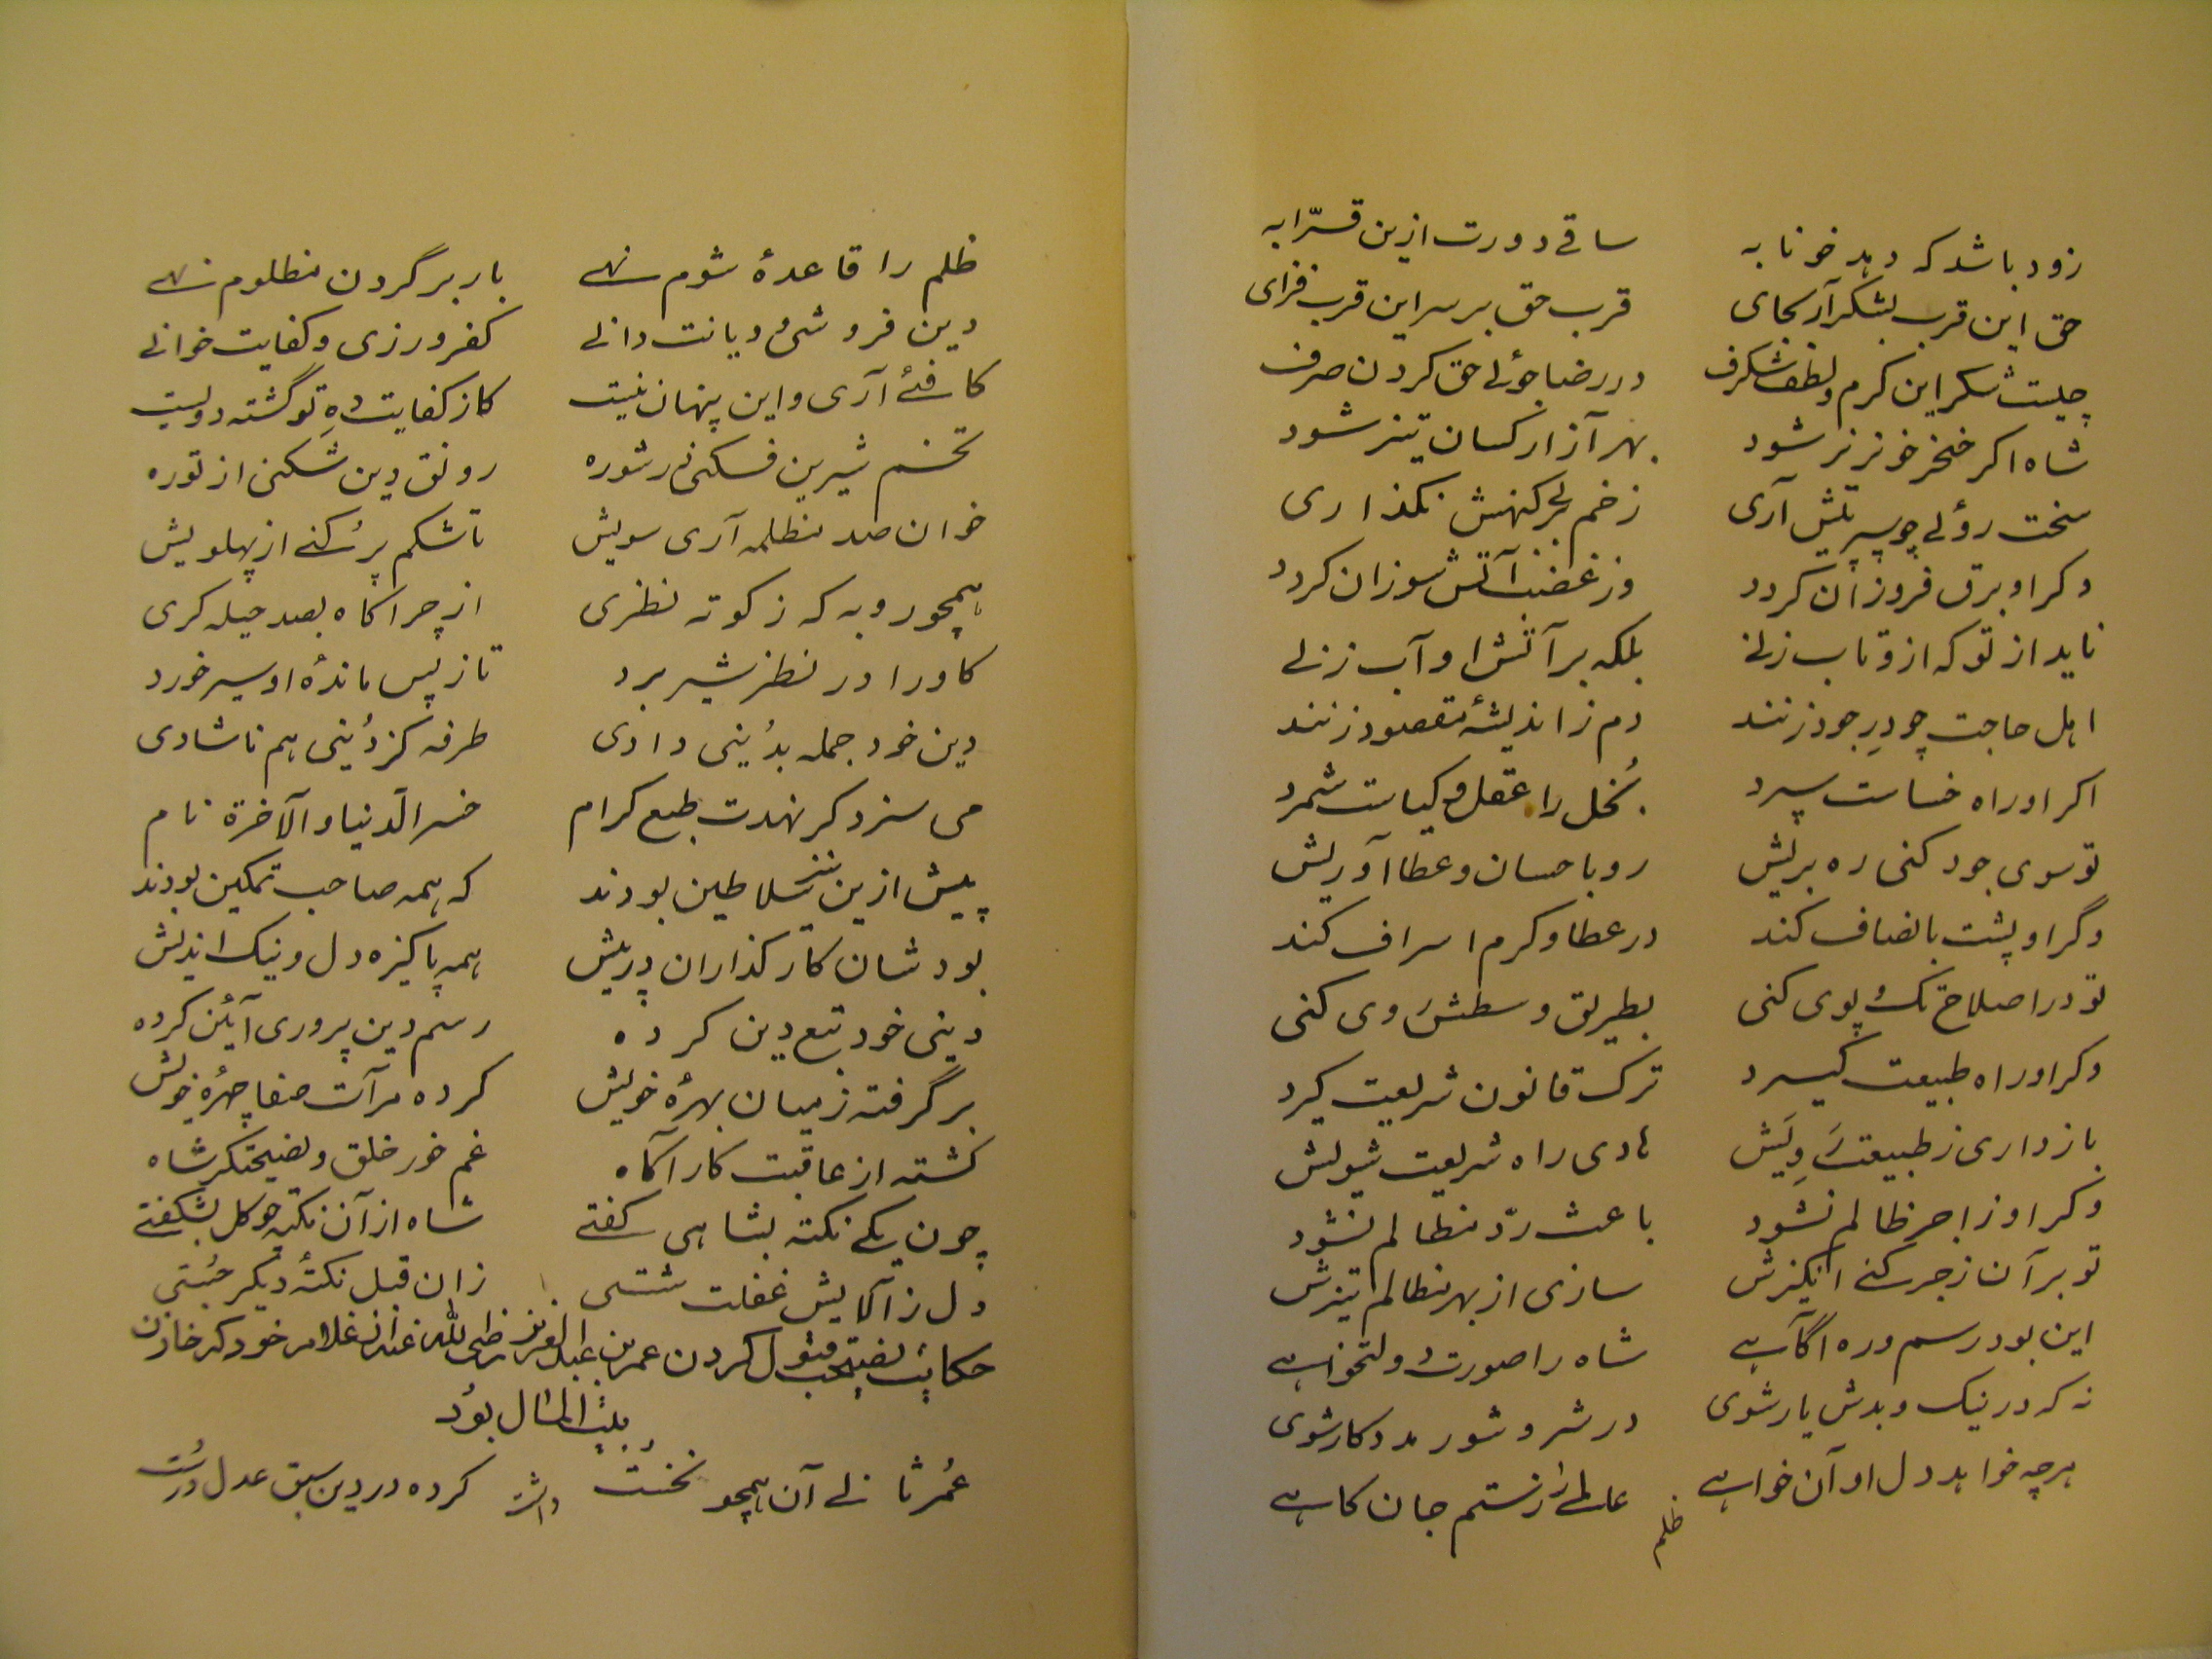 زود باشد که دهد خونابه ساقی دورت ازین قرّابه
حق این قرب بشکر آر بجای قرب حق بر سر این قرب فزای
چیست شکر این کرم و لطف شگرف در رضا جوئی حق کردن صرف
شاه اکر خنجر خونریز شود بهر آزار کسان تیز شود
سخت روئی چو سپر پیش آری زخم بر کنهش نکذاری
وکر او برق فروزان کردد وز غضب آتش سوزان کردد
ناید از تو که ازو تاب زنی بلکه بر آتش او آب زنی
اهل حاجت چو در جود زنند دم ز اندیشهٔ مقصود زنند
اکر او راه خساست سپرد بُخل را عقل و کیاست شمرد
تو سوی جود کنی ره بریش رو باحسان و عطا آوریش
وگر او پشت بانصاف کند در عطا و کرم اسراف کند
تو در اصلاح تک و پوی کنی بطریق وسطش روی کنی
وکر او راه طبیعت کیرد ترک قانون شریعت کیرد
باز داری ز طبیعت رویش هادی راه شریعت شویش
وکر او زاجر ظالم نشود باعث ردّ مظالم نشود
تو بر آن زجر کنی انکیزش سازی از بهر مظالم تیزش
این بود رسم و ره آگاهی شاه را صورت دولتخواهی
نه که در نیک و بدش یار شوی در شر و شور مددکار شوی
هر چه خواهد دل او آن خواهی عالمی را ز ستم جان کاهی
ظلم
ظلم را قاعدهٔ شوم نهی بار بر گردن مظلوم نهی
دین فروشی و دیانت دانی کفر ورزی و کفایت خوانی
کافئی آری و این پنهان نیست کاز کفایت دو تو گشته دویست
تخم شیرین فکنی در شوره رونق دین شکنی از توره
خوان صد مظلمه آری سویش تا شکم پر کنی از پهلویش
همچو روبه که ز کوته نظری از چراکاه بصد حیله کری
کاو را در نظر شیر برد تا ز پس ماندهٔ او سیر خورد
دین خود جمله بدُنیی دادی طرفه کز دُنیی هم ناشادی
می سزد کر نهدت طبع کرام خسر الدنیا و الآخرة نام
پیش ازین سلاطین بودند که همه صاحب تمکین بودند
بود شان کار کذاران در پیش همه پاکیزه دل و نیک اندیش
دینی خود تبع دین کرده رسم دین پروری آیین کرده
بر گرفته ز میان بهرهٔ خویش کرده مرآت صفا چهرهٔ خویش
کشته از عاقبت کار آکاه غم خور خلق و نصیحتکر شاه
چون یکی نکته بشاهی کفتی شاه از آن نکته چو کل بشکفتی
دل ز آلایش غفلت شستی زان قبل نکتهٔ دیکر جُستی
حکایت نصیحت قبول کردن عمر بن عبد العزیز رضی الله عنه از غلام خود که خازن
بیت المال بود
عُمر ثانی آن همچو نخست داشت کرده در دین سبق عدل درست